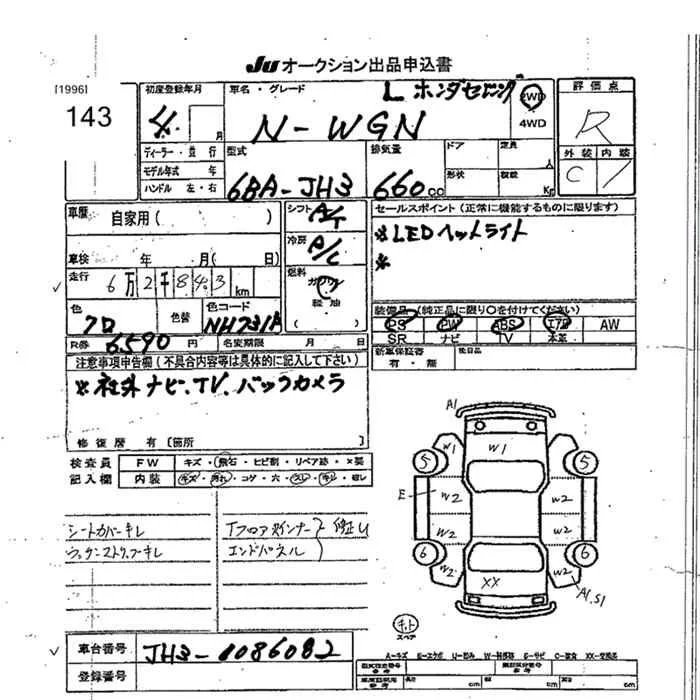 JU オークション出品申込書
[1996]
143
初度登録年月
4.
月
車名・グレード
L ホンダセンシング
N-WGN
2WD
4WD
評価点
R
外装 内装
C
ディーラー・並行
モデル年式 年
ハンドル 左・右
型式
6BA-JH3
排気量
660 cc
ドア
定員
人
形状
積載
Kg
車歴
自家用( )
シフト
A/T
セールスポイント (正常に機能するものに限ります)
※LEDヘッドライト
※
車検 年 月( 日)
冷房
A/C
走行
6万2千843 km
燃料
ガソリン
軽油
色
クロ
色替
色コード
NH731P
装備品 (純正品に限り○を付けてください)
PS PW ABS エアB AW
SR ナビ TV 本革
R券 6590 円
名変期限 月 日
新車保証書
有・無
後日品
注意事項申告欄 (不具合内容等は具体的に記入して下さい)
※社外ナビ、TV、バックカメラ
修復歴 有 [箇所 ]
検査員
記入欄
FW
キズ・飛石・ヒビ割・リペア跡・×要
内装
キズ・汚れ・コゲ・穴・スレ・キレ・
シートカバーキレ
Tフロアインナー
修正し
エンドパネル
A1
W1
W1
5
5
E
W2
W2
W2
W2
6
6
W2
W2
XX
A1,S1
キット
スペア
車台番号
JH3-1086082
登録番号
A-キズ E-エクボ U-凹み W-補修跡 S-サビ C-腐食 XX-交換済
参考
cm
cm
cm